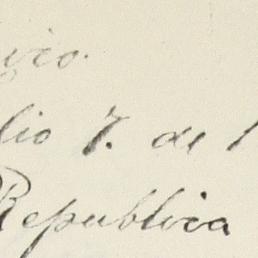 lio 7. de 1
Republica